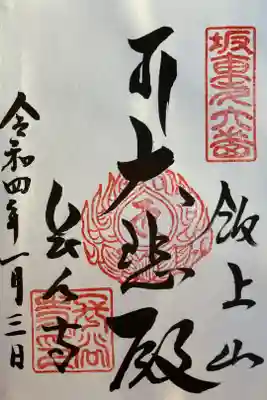 坂東第六番
飯上山
大悲殿
長谷寺
令和四年一月三日